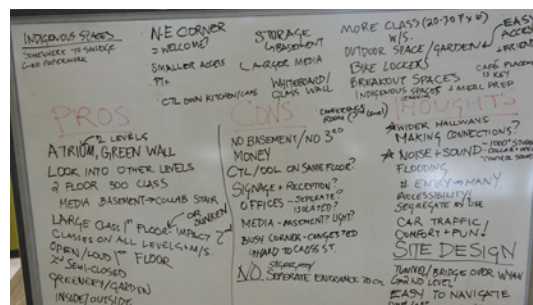 INDIGENOUS SPACES
SOMEWHERE TO SMUDGE
N-E CORNER
= WELCOME?
SMALLER ACCESS
CTL OWN KITCHEN/CAFE
STORAGE
BASEMENT
LARGER MEDIA
WHITEBOARD/
GLASS WALL
MORE CLASS (20-30
W/S.
OUTDOOR SPACE/GARDEN
EASY
ACCESS
BIKE LOCKERS
BREAKOUT SPACES
INDIGENOUS SPACES + MEAL PREP
CAFE
IS KEY
PROS
2 LEVELS
ATRIUM, GREEN WALL
LOOK INTO OTHER LEVELS
2 FLOOR 300 CLASS
MEDIA BASEMENT → COLLAB STAIR
LARGE CLASS 1ST FLOOR IMPACT?
OR SUNKEN
CLASSES ON ALL LEVELS
OPEN/LOUD 1ST FLOOR
2ND SEMI-CLOSED
GREENERY/GARDEN
INSIDE/OUTSIDE
CONS
NO BASEMENT/NO 3RD
MONEY
CTL/ODL ON SAME FLOOR?
SIGNAGE + RECEPTION?
OFFICES - SEPERATE?
ISOLATED?
MEDIA - BASEMENT? LIGHT?
BUSY CORNER - CONGESTED
HARD TO CROSS ST.
NO
SEPERATE ENTRANCE TO
THOUGHTS
WIDER HALLWAYS
MAKING CONNECTIONS?
NOISE + SOUND
FLOODING
# ENTRY → MANY
ACCESSIBILITY
SEGREGATE BY USE
CAR TRAFFIC
COMFORT + FUN!
SITE DESIGN
TUNNEL/BRIDGE OVER
GROUND LEVEL
EASY TO NAVIGATE